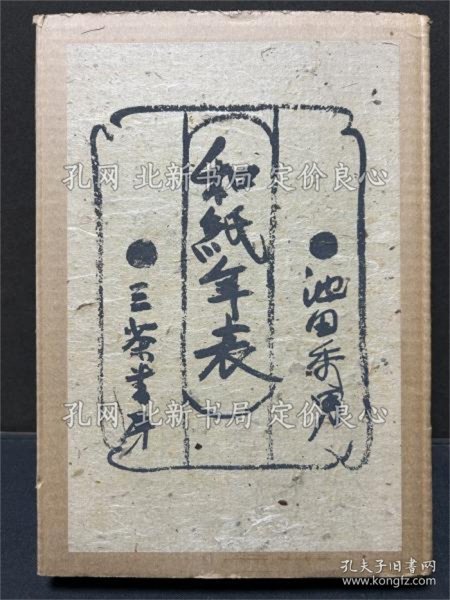 ●池田秀男
和紙年表
●三茶書房
孔网 北新书局 定价良心
孔网 北新书局 定价良心
孔夫子旧书网
www.kongfz.com